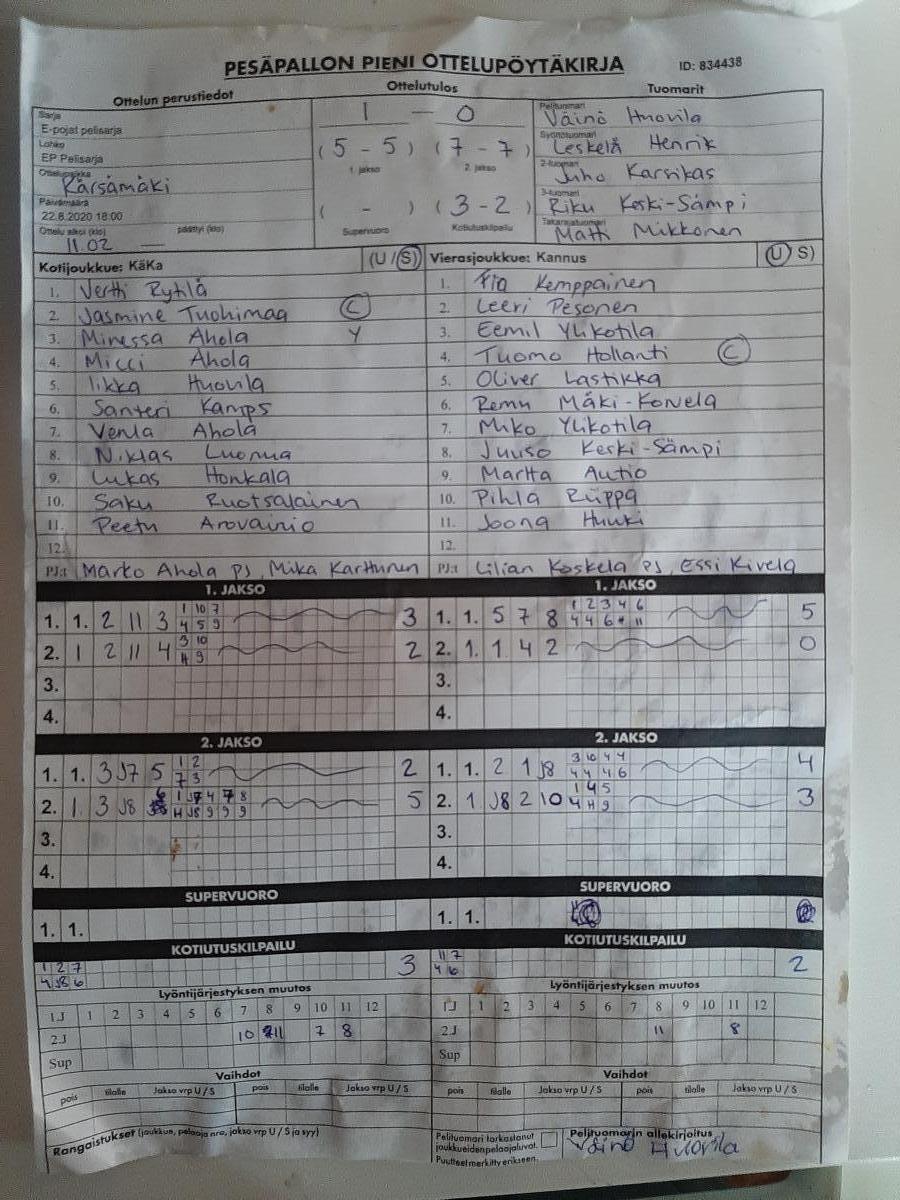 PESÄPALLON PIENI OTTELUPÖYTÄKIRJA ID: 834438
Ottelun perustiedot Ottelutulos Tuomarit
Sarja
E-pojat pelisarja
Lohko
EP Pelisarja
Ottelupaikka
Kärsämäki
Päivämäärä
22.8.2020 18:00
Ottelu alkoi (klo) päättyi (klo)
11.02 —
1 — 0
(5 - 5) (7 - 7)
1. jakso 2. jakso
( - ) (3 - 2)
Supervuoro Kotiutuskilpailu
Pelituomari
Väinö Huovila
Syöttötuomari
Leskelä Henrik
2-tuomari
Juho Karsikas
3-tuomari
Riku Keski-Sämpi
Takarajatuomari
Matti Mikkonen
Kotijoukkue: KäKa (U / S) Vierasjoukkue: Kannus (U S)
1. Vertti Rytilä 1. Kemppainen
2. Jasmine Tuohimaa C 2. Leeri Pesonen
3. Minessa Ahola Y 3. Eemil Ylikotila
4. Micci Ahola 4. Tuomo Hollanti C
5. Iikka Huovila 5. Oliver Lastikka
6. Santeri Kamps 6. Remu Mäki-Korvela
7. Venla Ahola 7. Miko Ylikotila
8. Niklas Luomua 8. Juuso Keski-Sämpi
9. Lukas Honkala 9. Martta Autio
10. Saku Ruotsalainen 10. Pihla Riippa
11. Peetu Arovainio 11. Joona Huuki
12. 12.
PJ:t Marko Ahola PJ, Mika Karttunen PJ:t Lilian Koskela PJ, Essi Kivelä
1. JAKSO 1. JAKSO
1. 1. 2 11 3 1 10 7 3 1. 1. 5 7 8 1 2 3 4 6 5
4 5 9 4 4 6 11
2. 1 2 11 4 3 10 2 2. 1. 1 4 2 0
H 9
3. 3.
4. 4.
2. JAKSO 2. JAKSO
1. 1. 3 J7 5 1 2 2 1. 1. 2 1 J8 3 10 4 4 4
7 3 4 4 4 6
2. 1. 3 J8 6 1 J7 4 7 8 5 2. 1 J8 2 10 1 4 5 3
H J8 9 9 9 4 H 9
3. 3.
4. 4.
SUPERVUORO SUPERVUORO
1. 1. 1. 1.
KOTIUTUSKILPAILU KOTIUTUSKILPAILU
1 2 7 3 11 7 2
4 J8 6 4 6
Lyöntijärjestyksen muutos Lyöntijärjestyksen muutos
1.J 1 2 3 4 5 6 7 8 9 10 11 12 1.J 1 2 3 4 5 6 7 8 9 10 11 12
2.J 10 11 7 8 2.J 11 8
Sup Sup
Vaihdot Vaihdot
pois tilalle Jakso vrp U / S pois tilalle Jakso vrp U / S pois tilalle Jakso vrp U / S pois tilalle Jakso vrp U / S
Rangaistukset (joukkue, pelaaja nro, jakso vrp U / S ja syy)
Pelituomari tarkastanut
joukkueiden pelaajaluvat.
Puutteet merkitty erikseen.
Pelituomarin allekirjoitus
Väinö Huovila